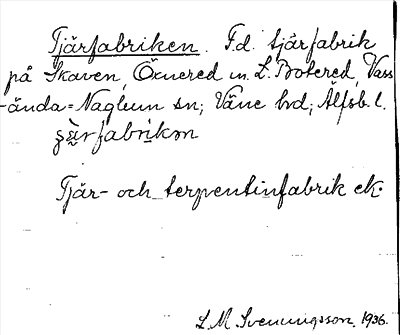 Tjärfabriken. F.d. tjärfabrik
på Skaven, Öxnered u. L. Botered, Vass
-ända-Naglum sn; Väne hd; Älfsb. l.
fabrikən
Tjär- och terpentinfabrik ek.
L. M. Svenungsson. 1936.